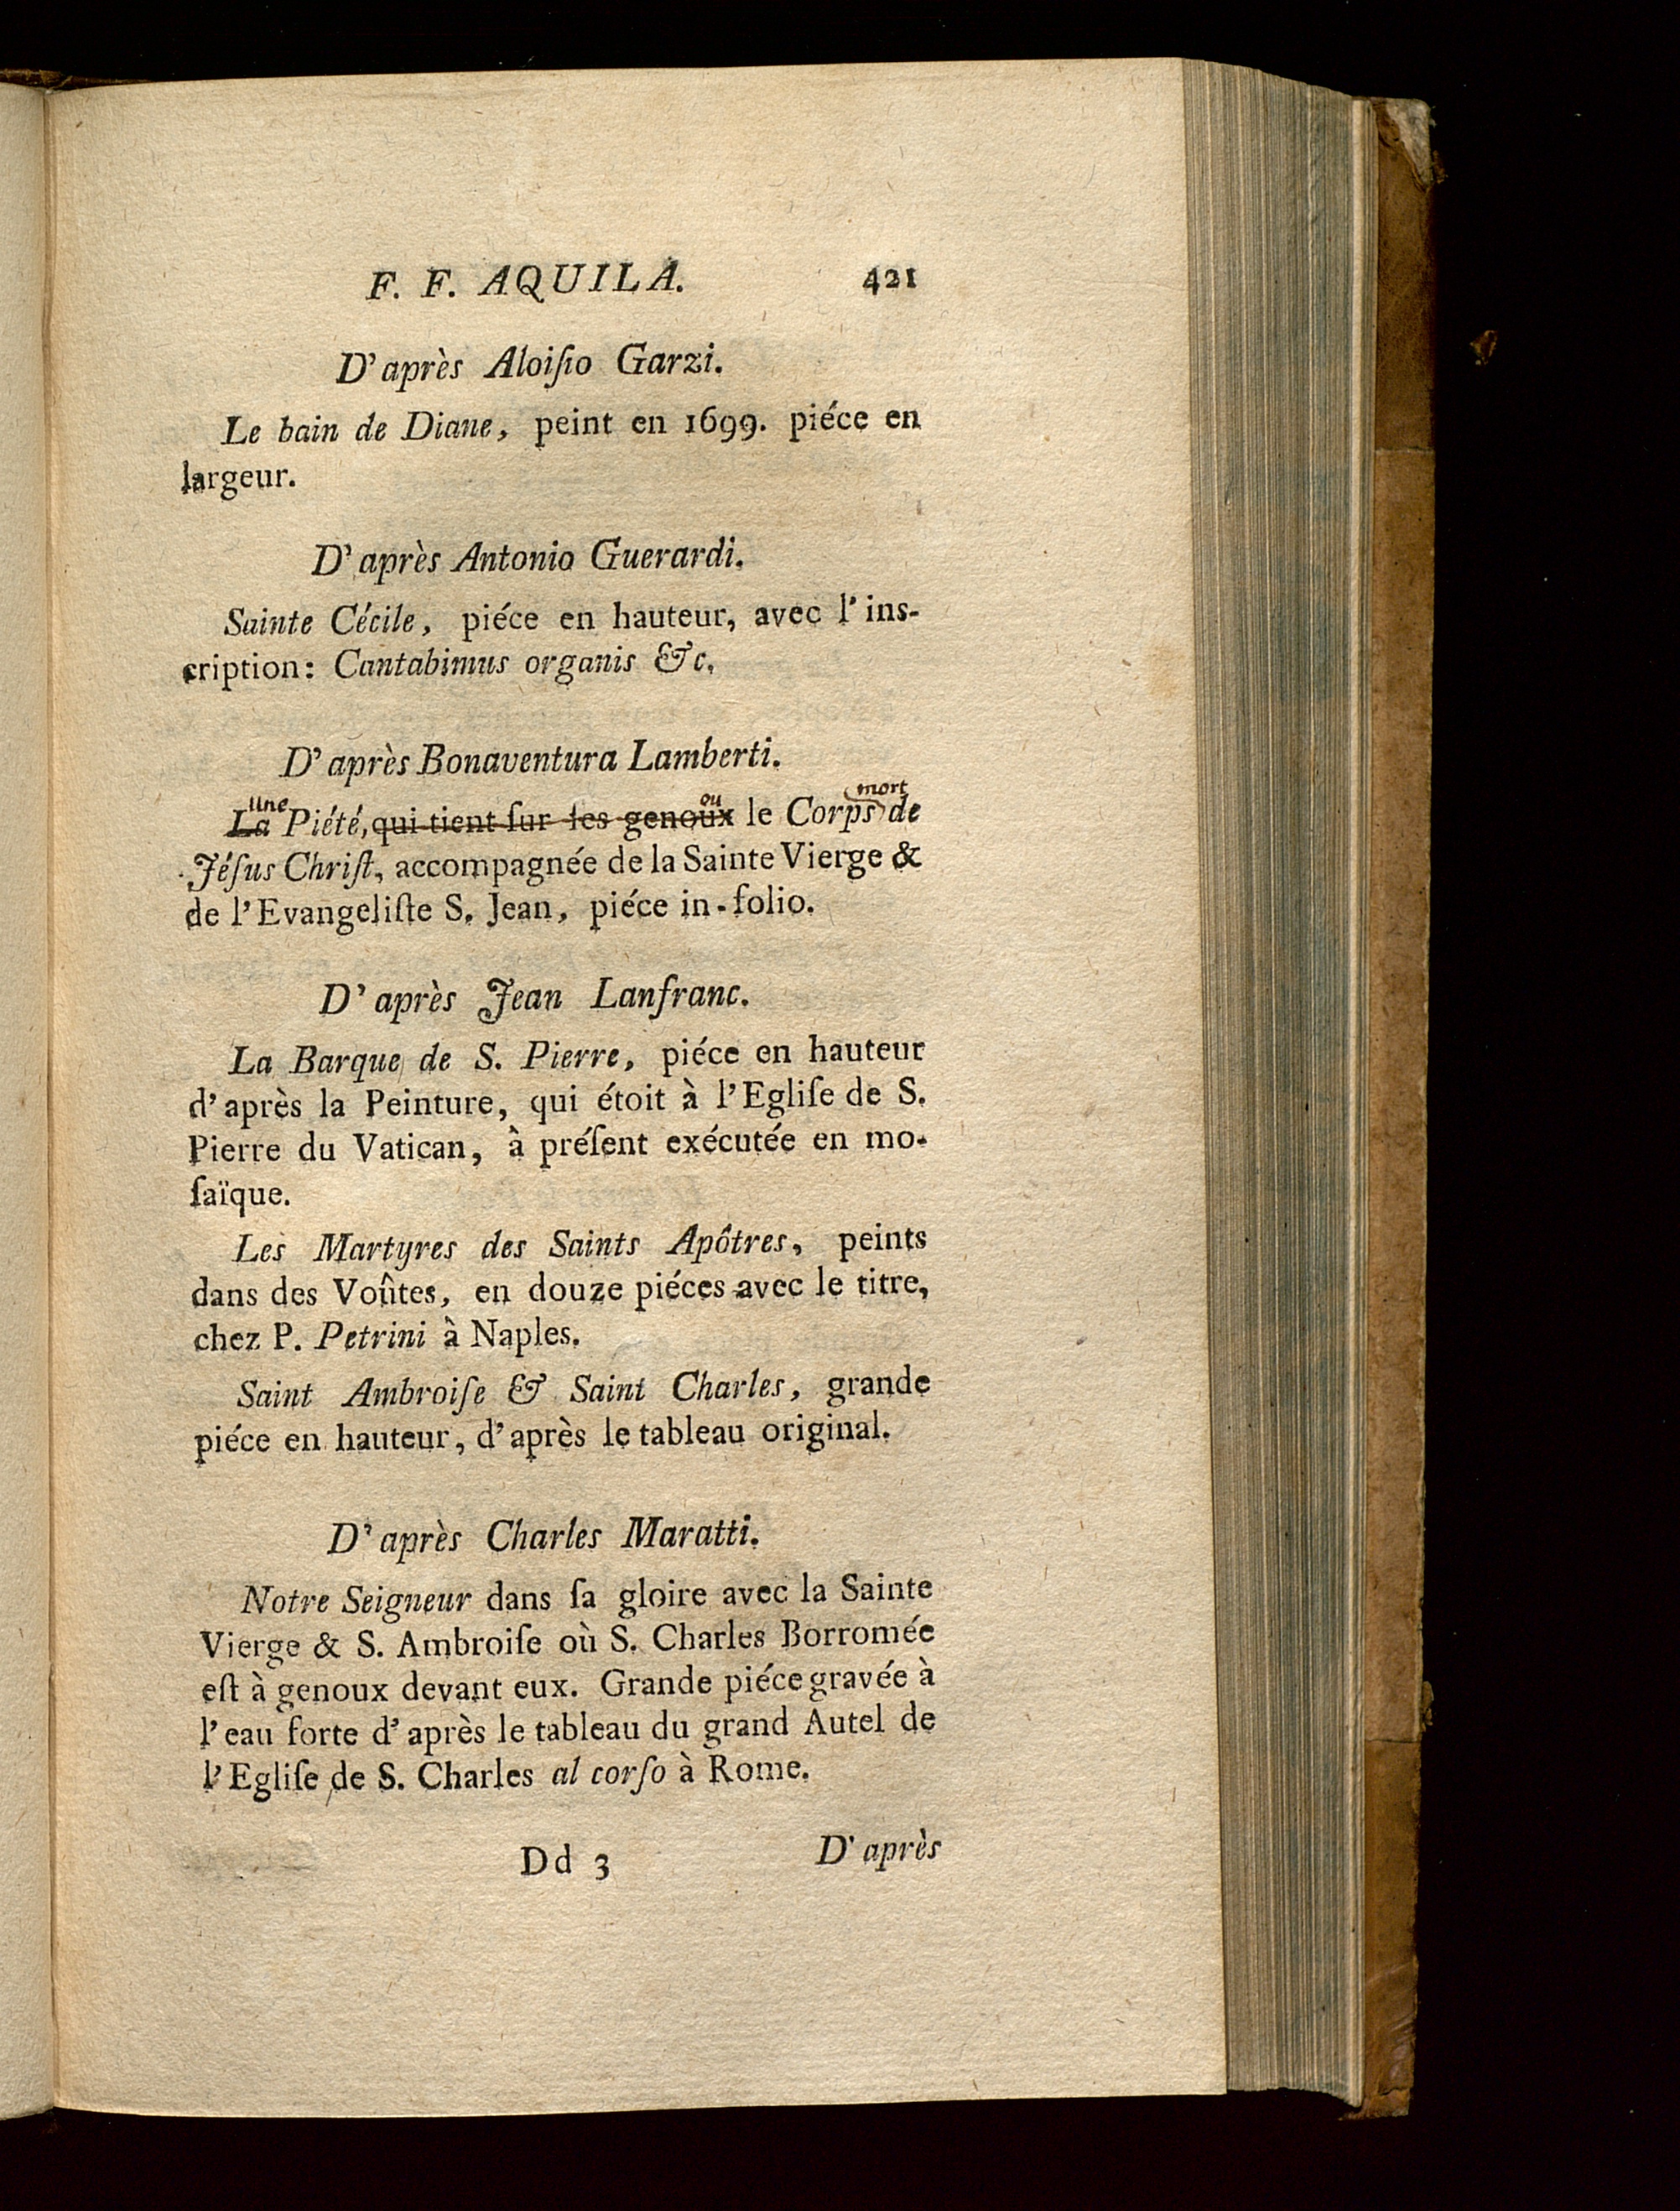 F. F. AQUILA. 421
D'après Aloiſio Garzi.
Le bain de Diane, peint en 1699. piéce en
largeur.
D'après Antonio Guerardi.
Sainte Cécile, piéce en hauteur, avec l'ins-
cription: Cantabimus organis &c.
D'après Bonaventura Lamberti.
Une ou mort
La Piété, qui tient ſur ſes genoux le Corps de
Jéſus Chriſt, accompagnée de la Sainte Vierge &
de l'Evangeliſte S. Jean, piéce in-folio.
D'après Jean Lanfranc.
La Barque de S. Pierre, piéce en hauteur
d'après la Peinture, qui étoit à l'Egliſe de S.
Pierre du Vatican, à préſent exécutée en mo-
ſaïque.
Les Martyres des Saints Apôtres, peints
dans des Voûtes, en douze piéces avec le titre,
chez P. Petrini à Naples.
Saint Ambroiſe & Saint Charles, grande
piéce en hauteur, d'après le tableau original.
D'après Charles Maratti.
Notre Seigneur dans ſa gloire avec la Sainte
Vierge & S. Ambroiſe où S. Charles Borromée
eſt à genoux devant eux. Grande piéce gravée à
l'eau forte d'après le tableau du grand Autel de
l'Egliſe de S. Charles al corſo à Rome.
Dd 3 D'après